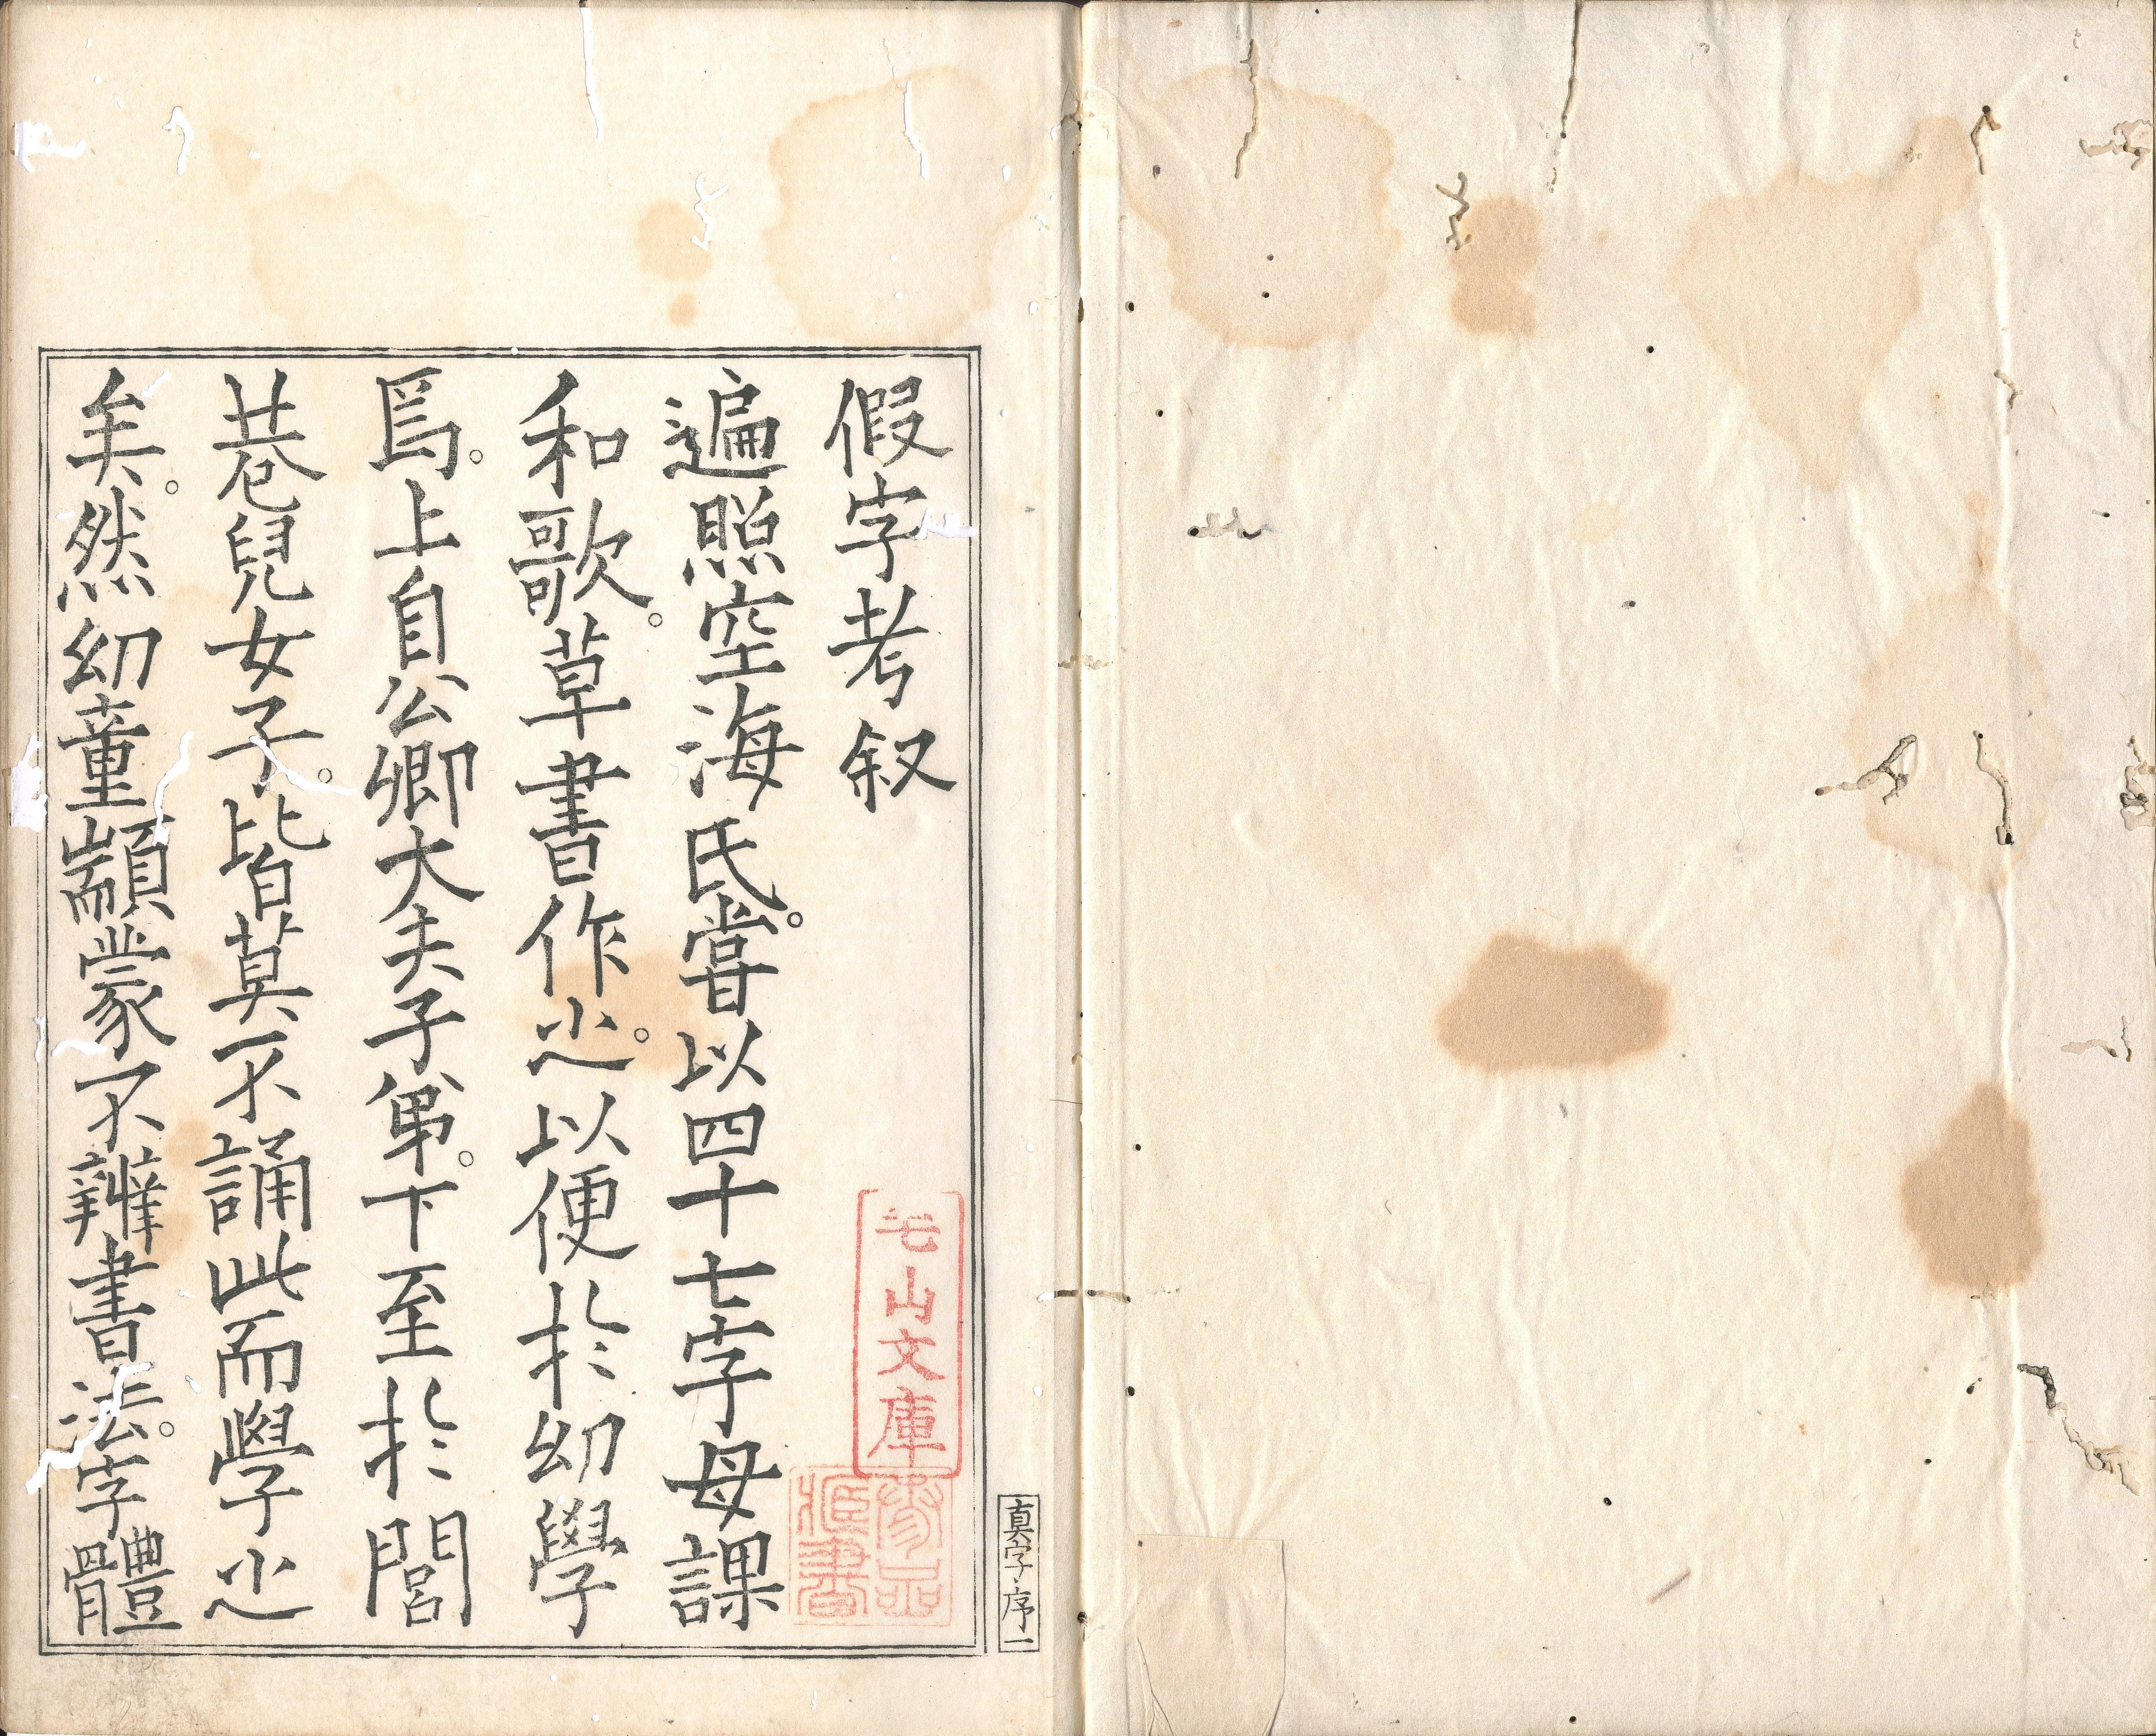 假字考叙
遍照空海氏。嘗以四十七字母課
和歌。草書作之。以便於幼學
焉。上自公卿大夫子弟。下至於閭
巷兒女子。皆莫不誦此而學之
矣。然幼童顓蒙不辨書法。字體
山文庫
藏書
真字序一